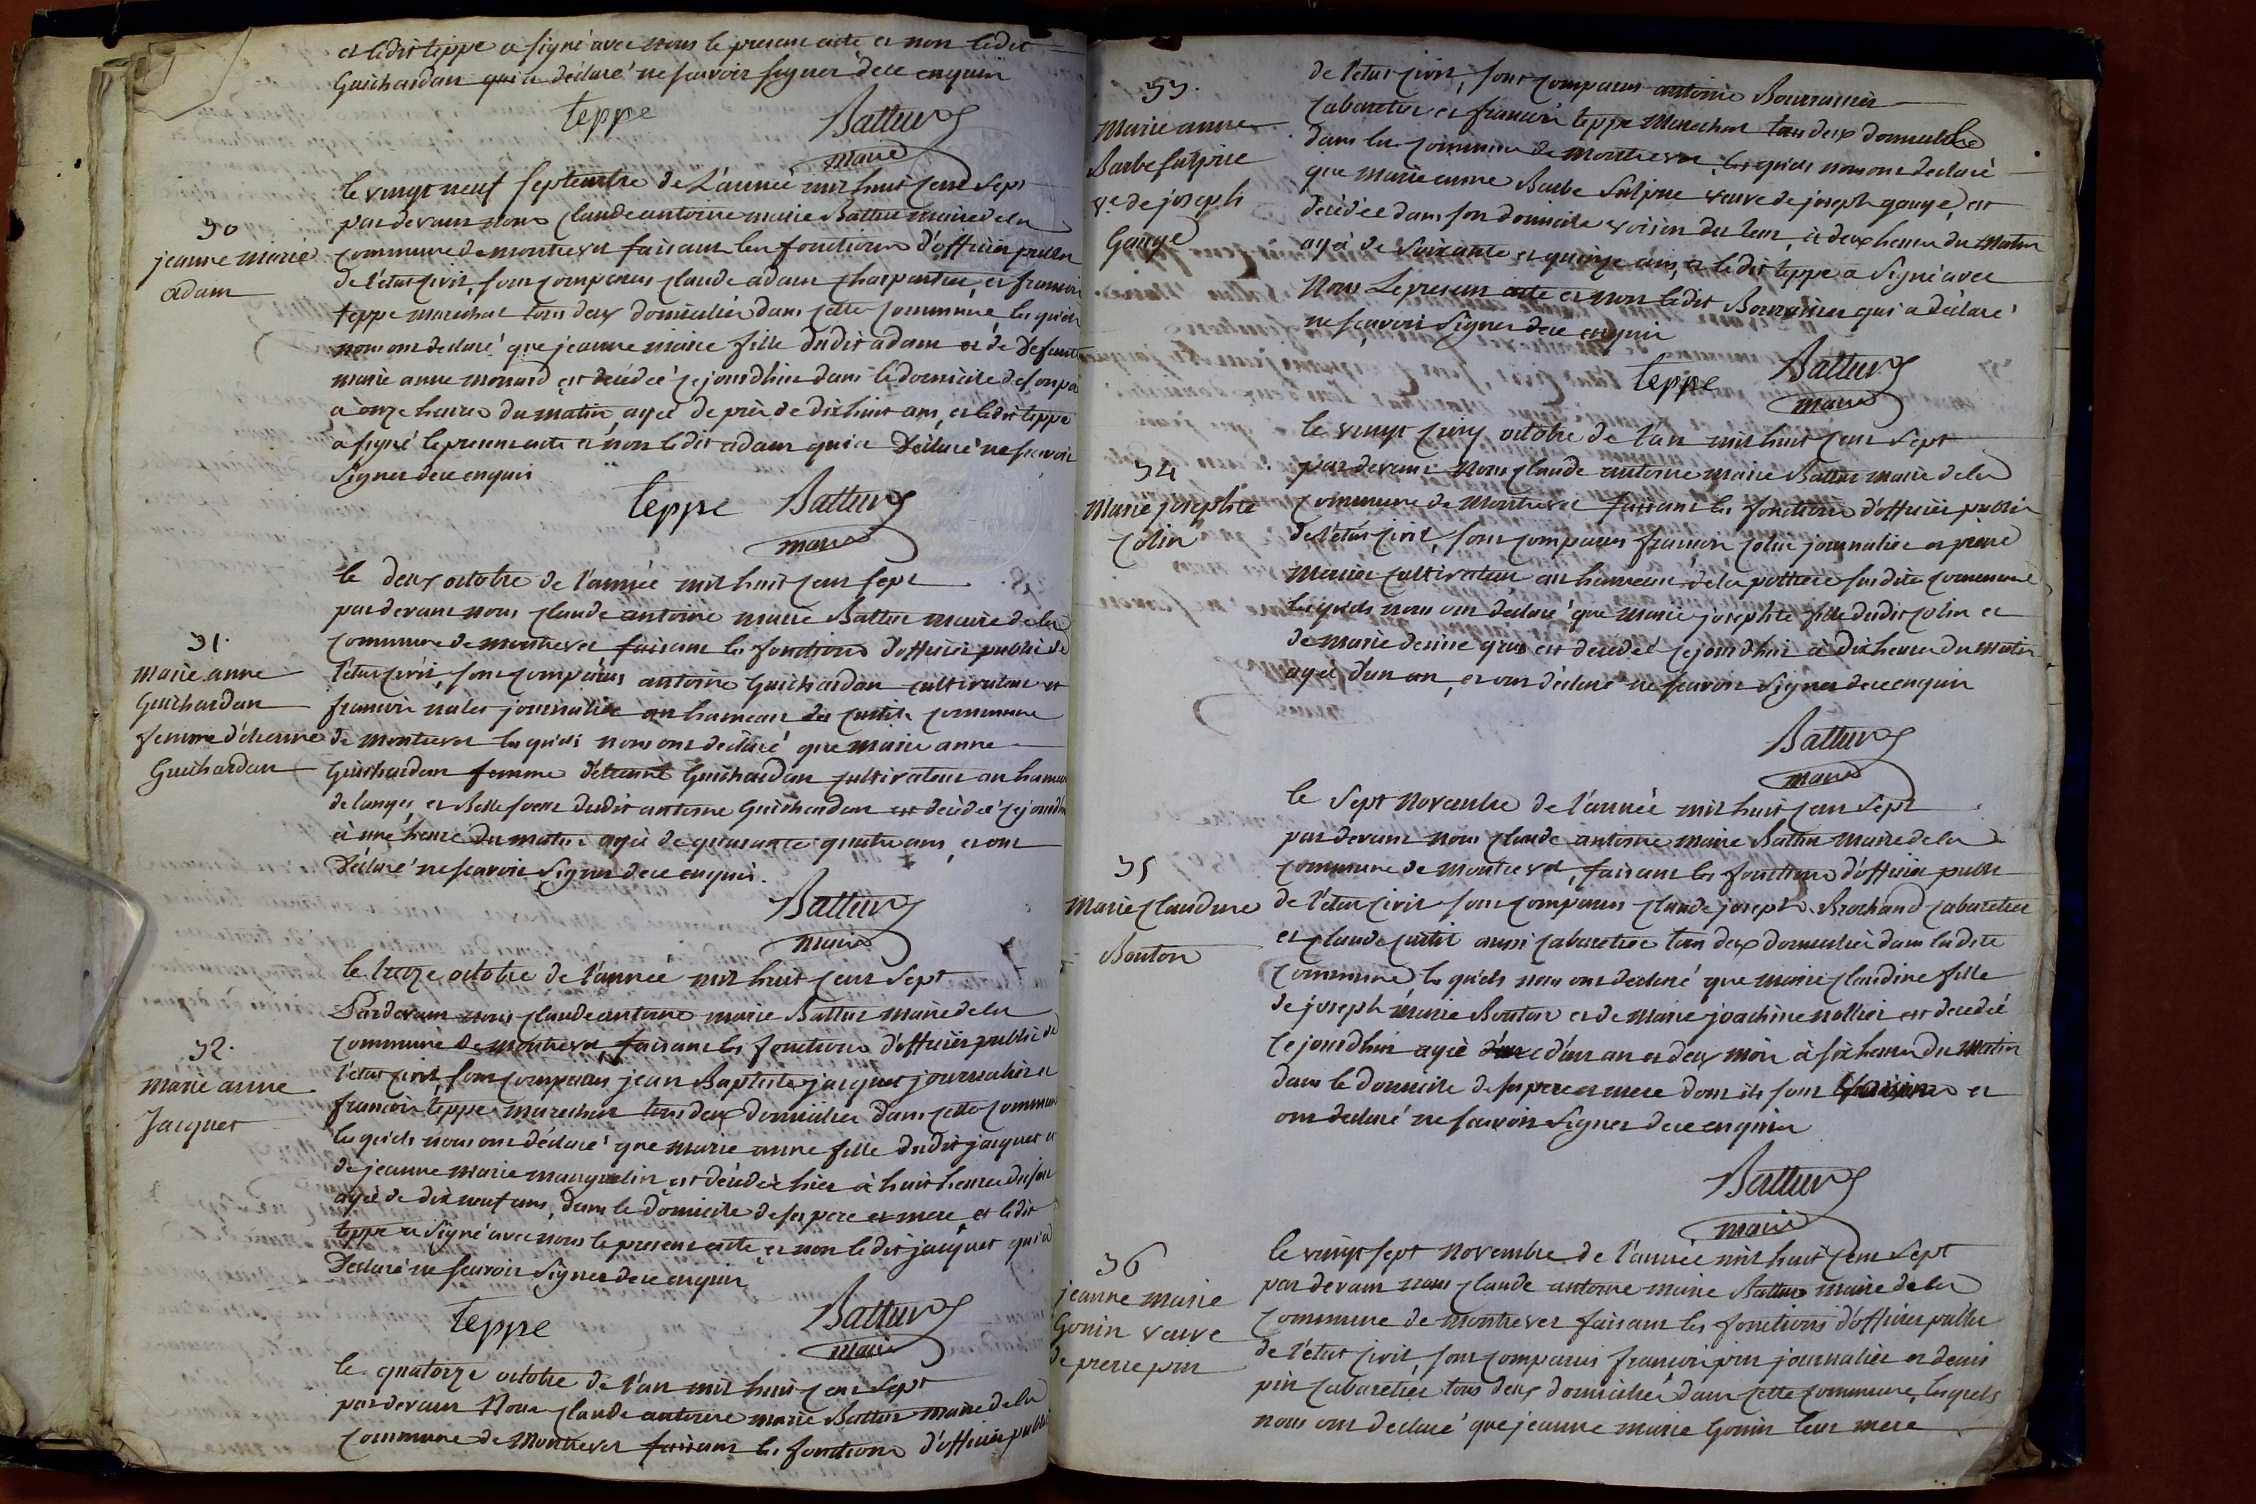 et ledit teppe a signé avec nous le present acte et non ledit
Guichardan qui a déclaré ne scavoir signer de ce enquis
teppe Battur
maire
30
jeanne marie
adam
le vingt neuf septembre de L'année mil huit cent sept
pardevant nous claude antoine marie Battur maire de la
commune de montrevel faisant les fonctions d'officier public
de l'état civil, sont comparus claude adam charpentier et francois
teppe marechal tous deux domiciliés dans cette commune les quels
nous ont declaré que jeanne marie fille dudit adam et de Defunte
marie anne monard est decédée ce jourdhui dans le domicile de son pere
à onze heures du matin agée de près de dix huit ans, et ledit teppe
a signé le present acte et non ledit adam qui a Déclaré ne scavoir
signer de ce enquis
teppe Battur
maire
31.
marie anne
Guichardan
femme d'etienne
Guichardan
le deux octobre de l'année mil huit cent sept
pardevant nous claude antoine marie Battur maire de la
commune de montrevel faisant les fonctions d'officier public de
l'état civil, sont comparus antoine Guichardan cultivateur et
francois journalier au hameau des curtils commune
de montrevel les quels nous ont déclaré que marie anne
Guichardan femme d'étienne Guichardan cultivateur au hameau
et Belle soeur dudit antoine Guichardan est decédée ce jourdhui
à une heure du matin agée de quarante quatre ans, et ont
Déclaré ne scavoir signer de ce enquis.
Battur
maire
32.
marie anne
Jacquet
le treize octobre de l'année mil huit cent sept
Pardevant nous claude antoine marie Battur maire de la
commune de montrevel, faisant les fonctions d'officier public de
l'état civil, sont comparus jean Baptiste jacquet journalier et
francois teppe marechal tous deux domiciliés dans cette commune
les quels nous ont déclaré que marie anne fille dudit jacquet et
de jeanne marie manguelin est décédée hier à huit heures du soir
agée de dix neuf ans, dans le domicile de ses pere et mere, et ledit
teppe a signé avec nous le present acte, et non ledit jacquet qui a
Déclaré ne scavoir signer de ce enquis
teppe Battur
maire
le quatorze octobre de l'an mil huit cent sept
pardevant Nous claude antoine marie Battur maire de la
commune de Montrevel faisant les fonctions d'officier public
33.
Marie anne
Barbe Sulpice
ve de joseph
Gauge
de l'etat civil, sont comparus antoine
cabaretier et francois teppe Marechal tous deux domiciliés
dans la commune de montrevel, les quels nous ont declaré
que marie anne Barbe Sulpice veuve de joseph gauge, est
decédée dans son domicile voisin des leur, à deux heures du Matin
agée de soixante et quinze ans, et ledit teppe a signé avec
Nous Le present acte et non ledit qui a déclaré
ne scavoir signer de ce enquis
teppe Battur
maire
34
Marie josephte
Colin
le vingt cinq octobre de l'an mil huit cent sept
pardevant Nous claude antoine marie Battur maire de la
commune de Montrevel faisant les fonctions d'officier public
de l'état civil, sont comparus francois colin journalier et pierre
cultivateur au hameau de la susdite commune
les quels nous ont déclaré que Marie josephte fille dudit colin et
de Marie denise est decedée ce jourdhui à dix heures du matin
agée d'un an, et ont déclaré ne scavoir signer de ce enquis
Battur
maire
35
Marie claudine
Bouton
le sept Novembre de l'année mil huit cent sept
pardevant nous claude antoine marie Battur maire de la
commune de montrevel, faisant les fonctions d'officier public
de l'état civil sont comparus claude joseph Brochand cabaretier
et claude curtil aussi cabaretier tous deux domiciliés dans ladite
commune, les quels nous ont declaré que marie claudine fille
de joseph marie Bouton et de Marie joachine nallier est decedée
ce jourdhui agée d'un an et deux mois à six heures du matin
dans le domicile de ses pere et mere dont ils sont voisins et
ont declaré ne scavoir signer de ce enquis
Battur
maire
36
jeanne marie
Gonin veuve
de pierre pin
le vingt sept Novembre de l'année mil huit cent sept
pardevant nous claude antoine marie Battur maire de la
commune de montrevel faisant les fonctions d'officier public
de l'état civil, sont comparus francois pin journalier et denis
pin cabaretier tous deux domiciliés dans cette commune, lesquels
nous ont declaré que jeanne marie Gonin leur mere